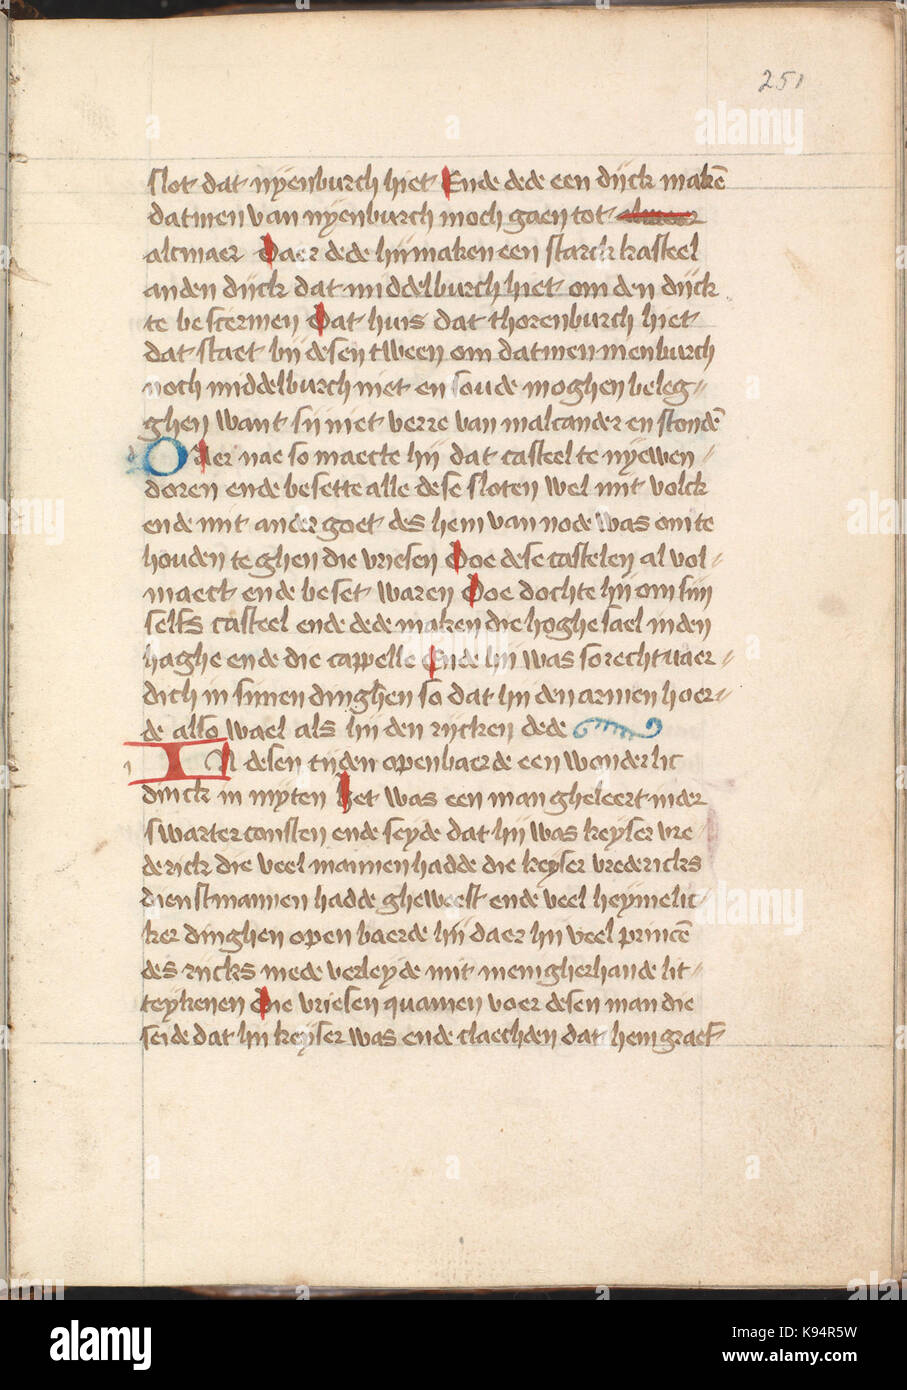 251
slot dat nÿenburch hiet Ende dede een dijck makē
datmen van nÿenburch moch gaen tot
alcmaer Daer dede hij maken een starck kasteel
an den dijck dat middelburch hiet om den dijck
te bescermen Dat huis dat thorenburch hiet
dat staet bij desen tween om datmen nienburch
noch middelburch niet en soude moghen beleg-
ghen want sij niet verre van malcander en stondē
Daer nae so maecte hij dat casteel te nyewen-
doren ende besette alle dese sloten wel mit volck
ende mit ander goet des hem van node was om te
houden teghen die vriesen Doe dese castelen al vol-
maect ende beset waren Doe dochte hij om sijn
selfs casteel ende dede maken die hoghe sael in den
haghe ende die cappelle Ende hij was so rechtvaer-
dich in sinen dinghen so dat hij den armen hoer-
de also wael als hij den rijcken dede
IN desen tijden openbaerde een wonderlic
dinck in nuyten Het was een man gheleert in der
swarter consten ende seyde dat hij was keyser vre-
derick die veel mannen hadde die keyser vredericks
dienstmannen hadde gheweest ende veel heymelic-
ker dinghen openbaerde hij daer hij veel princē
des rijcks mede verleyde mit menigherhande lit-
teykenen Die vriesen quamen voer desen man die
seide dat hij keyser was ende claechden dat hem graef
alamy
K94R5W
www.alamy.com